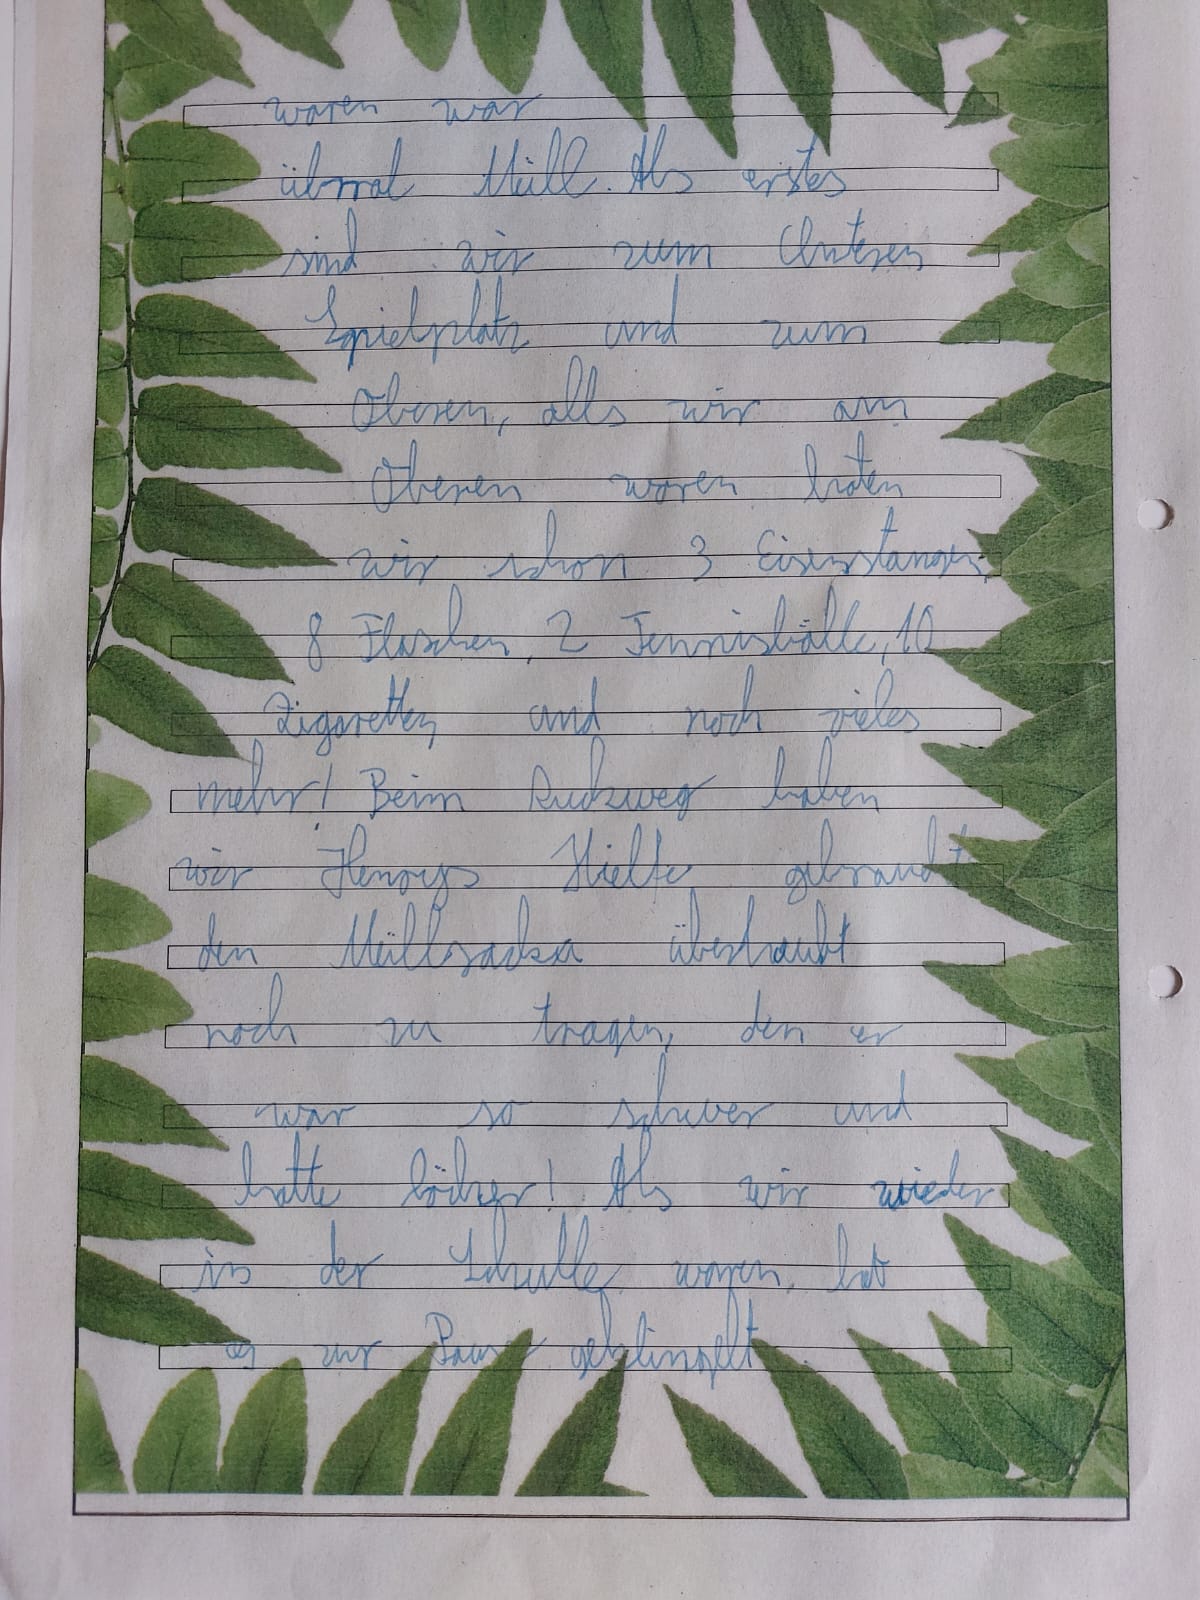 waren war
überal Müll. Als erstes
sind wir zum Unteren
Spielplatz und zum
Oberen, alls wir am
Oberen waren haten
wir schon 3 Eisenstangen,
8 Flaschen, 2 Tennisbälle, 10
Zigaretten und noch vieles
mehr! Beim Ruckweg haben
wir Henrys Hielfe gebraucht
den Müllsack überhaubt
noch zu tragen, den er
war so schwer und
hatte löcher! Als wir wieder
in der Schulle waren, hat
es zur Pause geklingelt